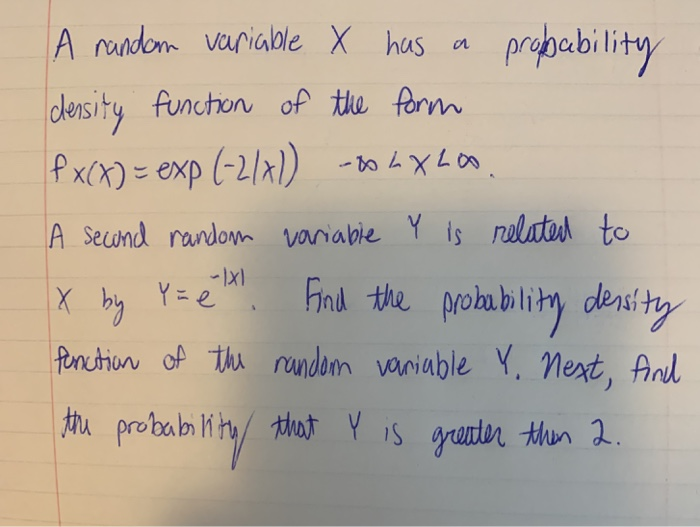 A random variable X has a probability
density function of the form
fx(x) = exp (-2|x|) -∞ < x < ∞.
A second random variable Y is related to
X by Y = e^-|x|. Find the probability density
function of the random variable Y. Next, find
the probability that Y is greater then 2.